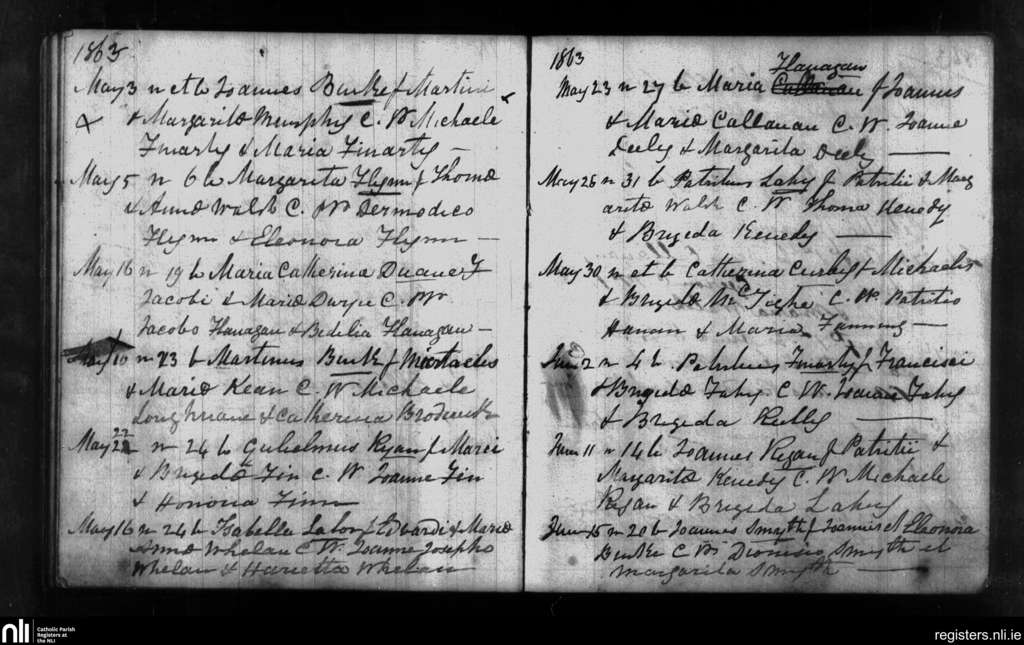 1863
May 3 n et b Joannes Burke f Martini
& Margarita Murphy C. W Michaele
Finarty & Maria Finarty —
May 5 n 6 b Margarita Flynn f Thoma
& Anna Walsh C. W Dermodico
Flynn & Eleonora Flynn —
May 16 n 19 b Maria Catherina Duane f
Jacobi & Maria Dwyer C. W
Jacobo Flanagan & Bedelia Flanagan —
May 10 n 23 b Martinus Burke f Michaelis
& Maria Kean C. W Michaele
Loughnane & Catherina Broderick
May 22 n 24 b Gulielmus Ryan f Marci
& Brigida Fin C. W Joanne Fin
& Honora Finn
May 16 n 24 b Isabella Lalor f Edvardi & Maria
Anna Whelan C W. Joanne Josepho
Whelan & Harietta Whelan
1863
Flanagan
May 23 n 27 b Maria Callanan f Joannes
& Maria Callanan C. W. Joanne
Deely & Margarita Deely —
May 25 n 31 b Patritius Lahy f Patritii & Marg
arita Walsh C. W Thoma Kenedy
& Brigeda Kenedy —
May 30 n et b Catherina Curley f Michaelis
& Brigida McTighe C. W. Patritio
Hanon & Maria Fanning —
June 2 n 4 b Patritius Finarty f Francisci
& Brigida Fahy C. W. Joanne Fahy
& Brigeda Kelly —
June 11 n 14 b Joannes Regan f Patritii &
Margarita Kenedy C. W Michaele
Regan & Brigeda Lahey
June 15 n 20 b Joannes Smyth f Joannis et Eleonora
Burke C W Dionisio Smyth et
Margarita Smyth —
nli
Catholic Parish
Registers at
the NLI
registers.nli.ie